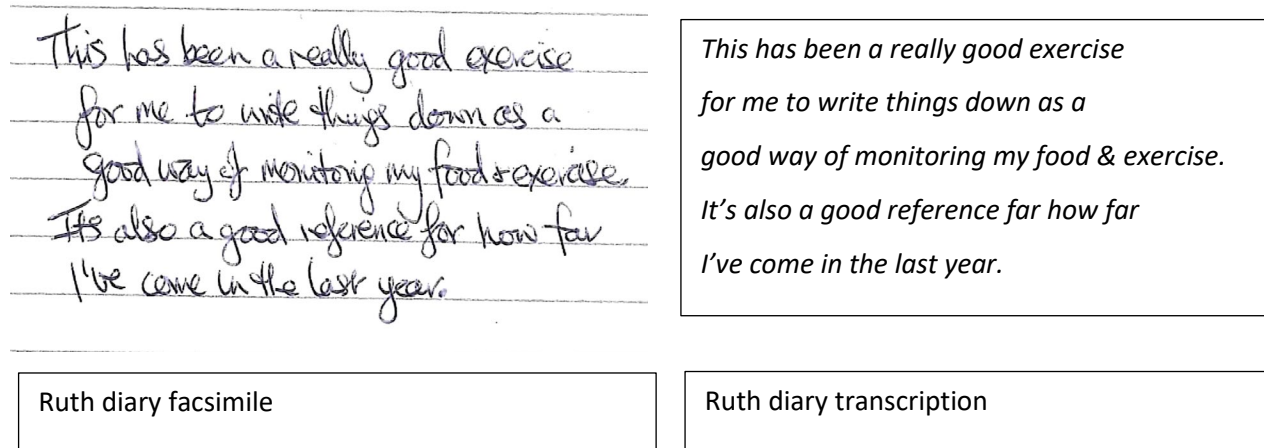 This has been a really good exercise
for me to write things down as a
good way of monitoring my food & exercise.
It's also a good reference for how far
I've come in the last year.
This has been a really good exercise
for me to write things down as a
good way of monitoring my food & exercise.
It's also a good reference far how far
I've come in the last year.
Ruth diary facsimile
Ruth diary transcription